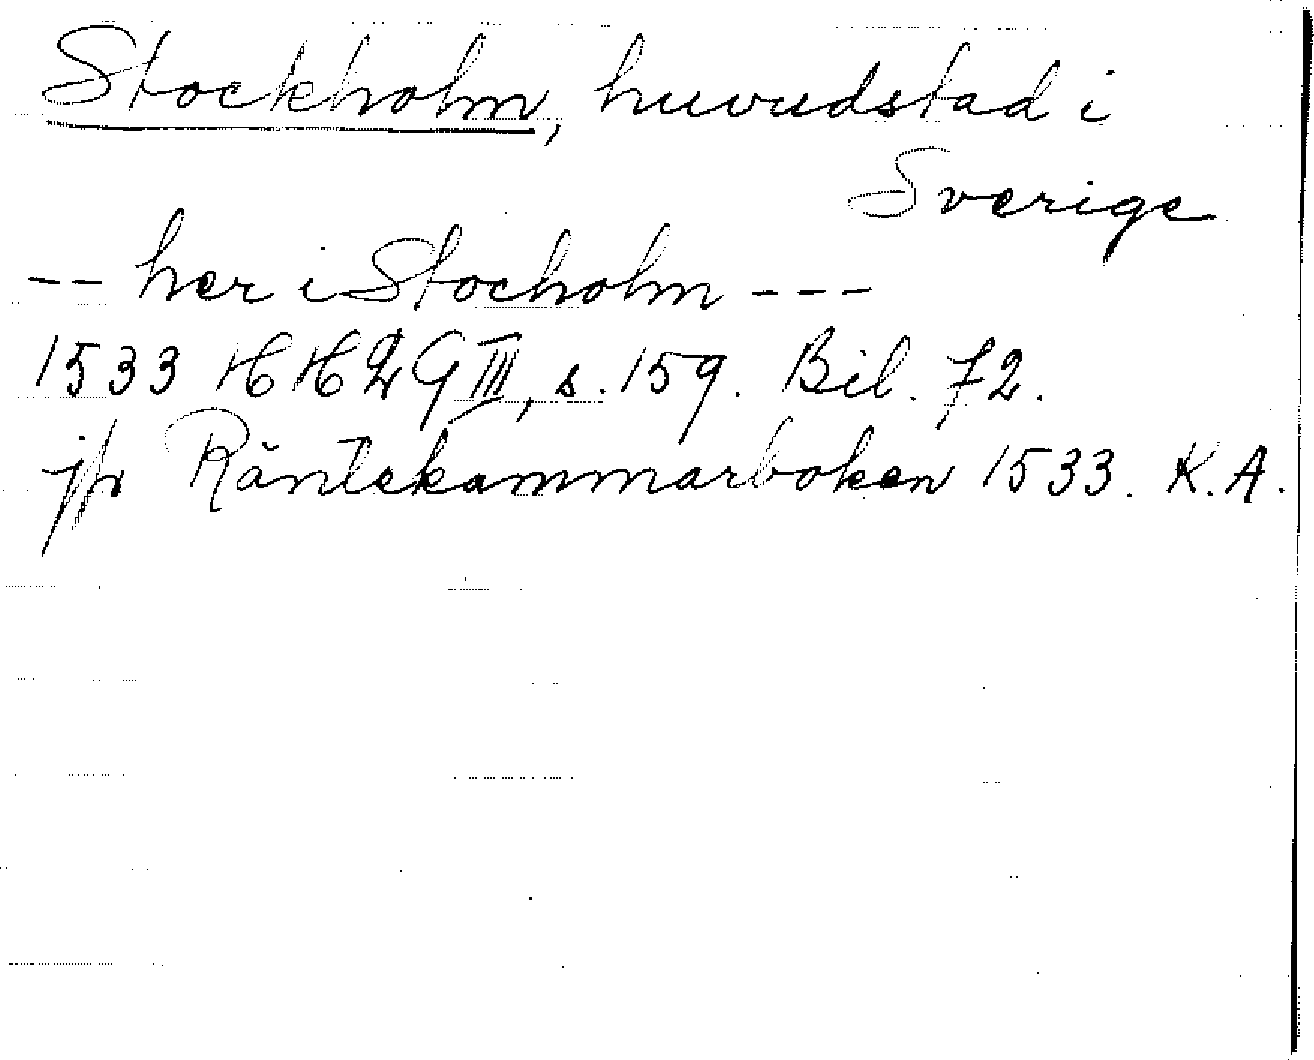 Stockholm, huvudstad i
Sverige
-- her i Stocholm ---
1533 HH2G III, s. 159. Bil. 72.
jfr Räntekammarboken 1533. K.A.